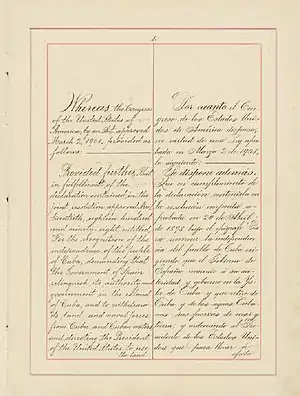 1.
Whereas the Congress
of the United States of
America, by an Act approved
March 2, 1901, provided as
follows:
Provided further, That
in fulfillment of the
declaration contained in the
joint resolution approved April
twentieth, eighteen hundred
and ninety-eight, entitled,
"For the recognition of the
independence of the people
of Cuba, demanding that
the Government of Spain
relinquish its authority and
government in the island
of Cuba, and to withdraw
its land and naval forces
from Cuba and Cuban waters,
and directing the President
of the United States to use
the land
Por cuanto el Con-
greso de los Estados Uni-
dos de América dispuso,
en virtud de una Ley apro-
bada en Marzo 2 de 1901,
lo siguiente:
Se dispone además,
Que en cumplimiento de
la declaración contenida en
la resolución conjunta a-
probada en 20 de Abril
de 1898, bajo el epígrafe "Pa-
ra reconocer la independen-
cia del pueblo de Cuba exi-
giendo que el Gobierno de
España renuncie á su au-
toridad y gobierno en la Is-
la de Cuba y que retire de
Cuba y de las aguas Cuba-
nas sus fuerzas de mar y
tierra, y ordenando al Pre-
sidente de los Estados Uni-
dos que para llevar á
efecto